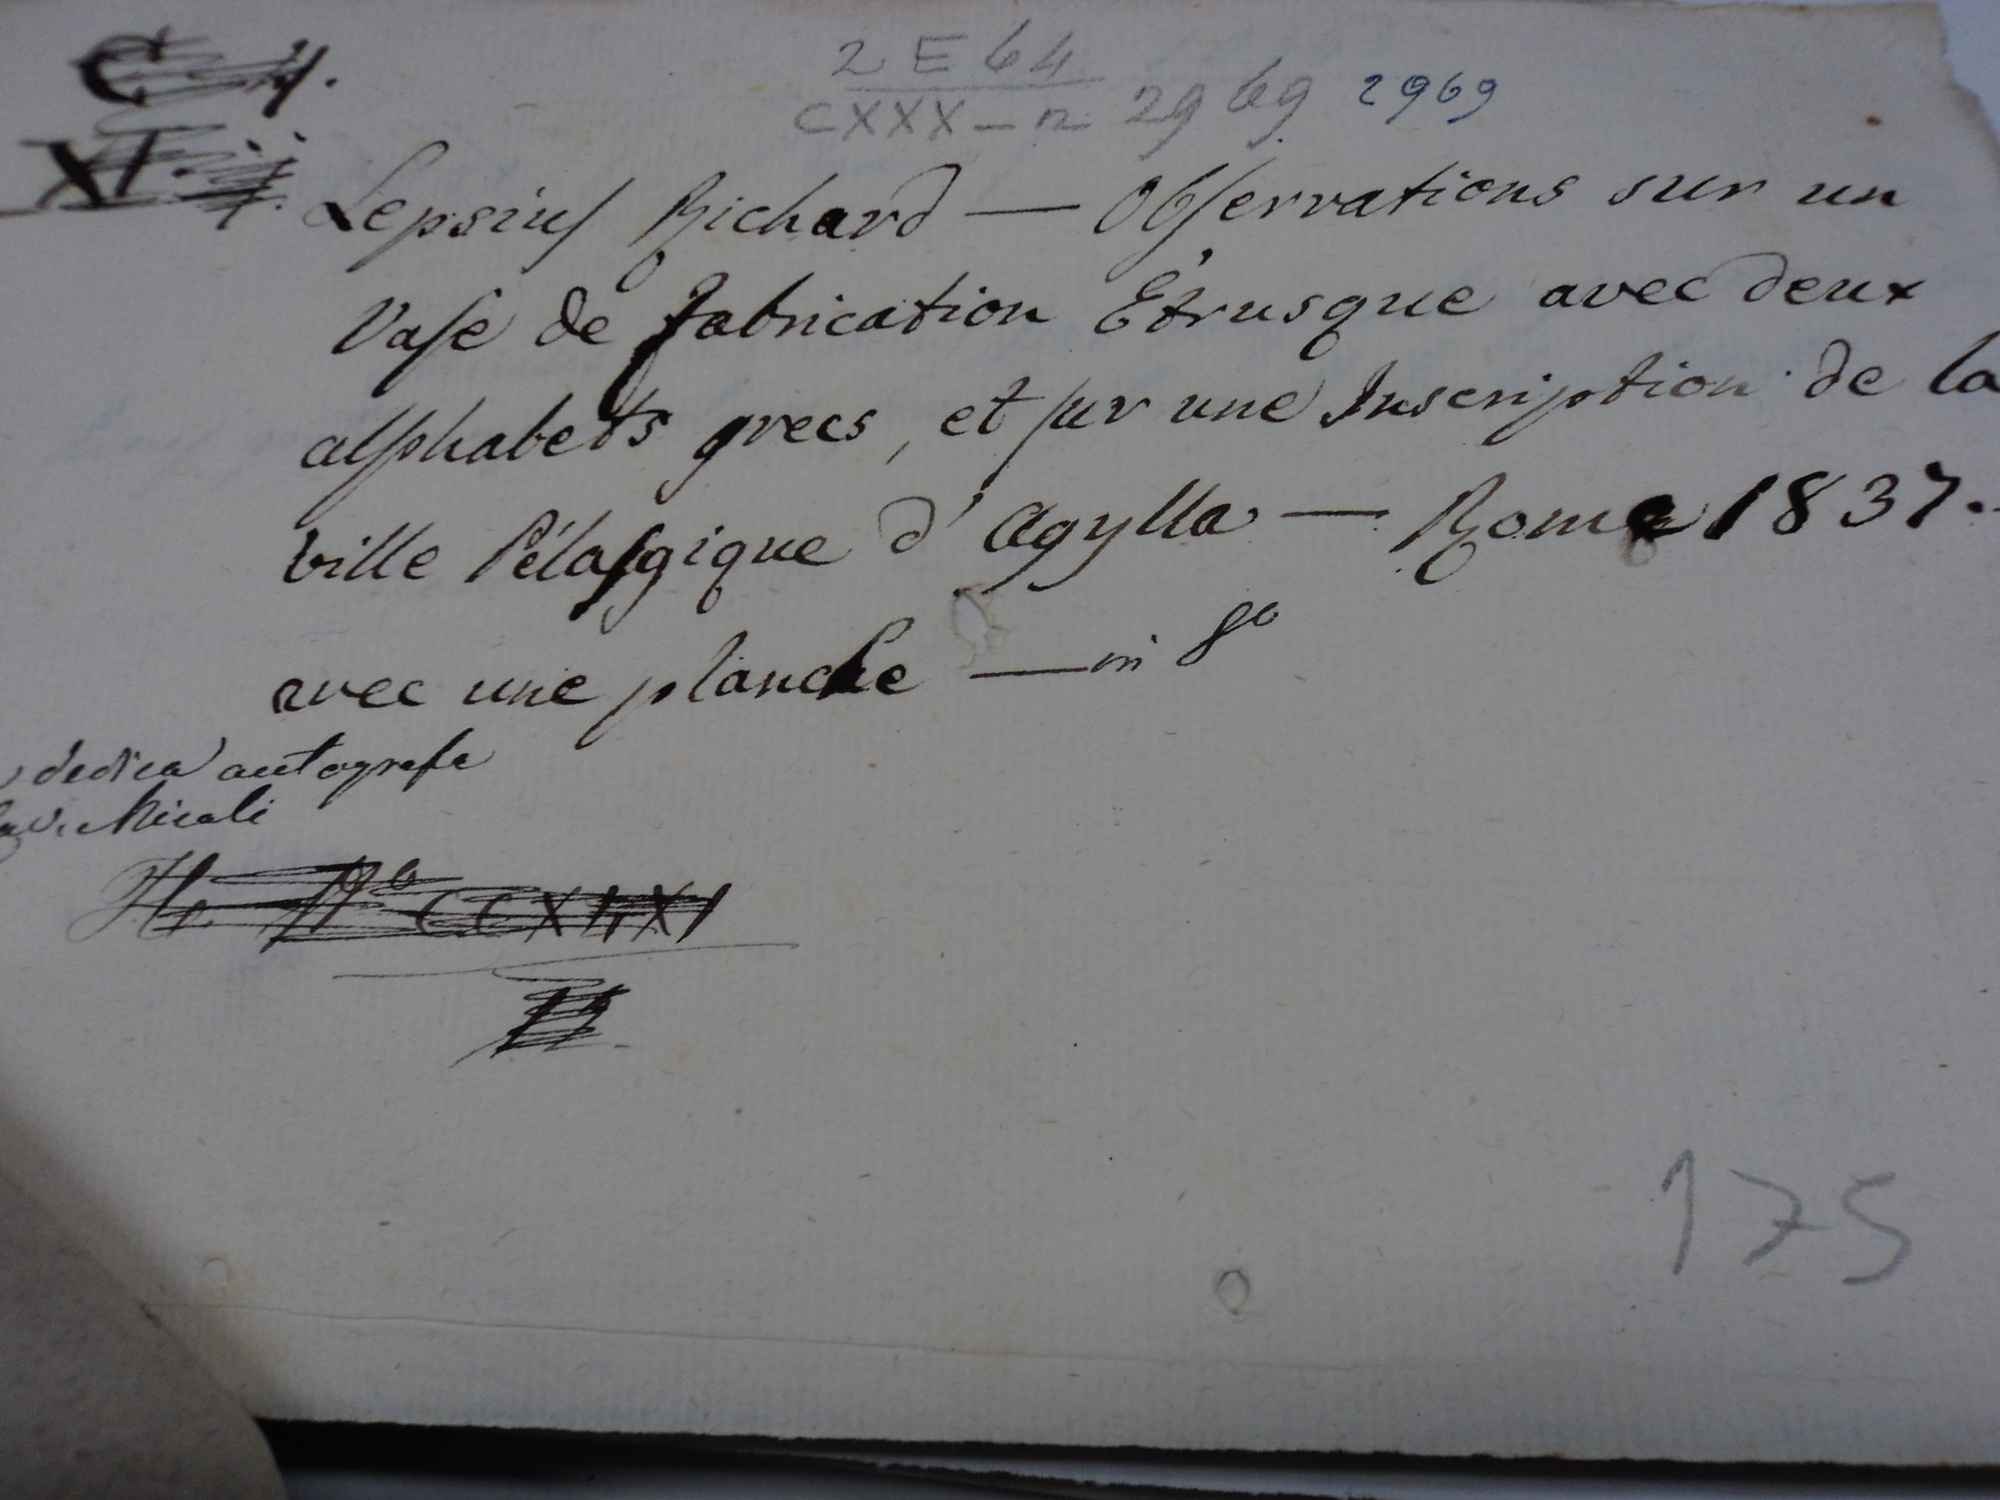 2 E 64
CXXX - n 2969 2969
Lepsius Richard — Observations sur un
Vase de fabrication Étrusque avec deux
alphabets grecs, et sur une Inscription de la
ville Pélasgique d'Agylla — Rome 1837.
avec une planche — in 8º
dedica autografa
Micali
175